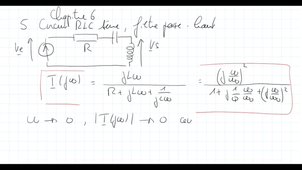 Chapitre 6
5 Circuit RLC série, filtre passe-haut
Ve R Vs
T(jω) = jLω / (R + jLω + 1/(jCω)) = (j ω/ω₀)² / (1 + j (1/Q) (ω/ω₀) + (j ω/ω₀)²)
ω → 0, |T(jω)| → 0